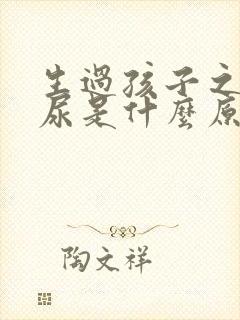 生過孩子之
尿是什麼原
陶文祥